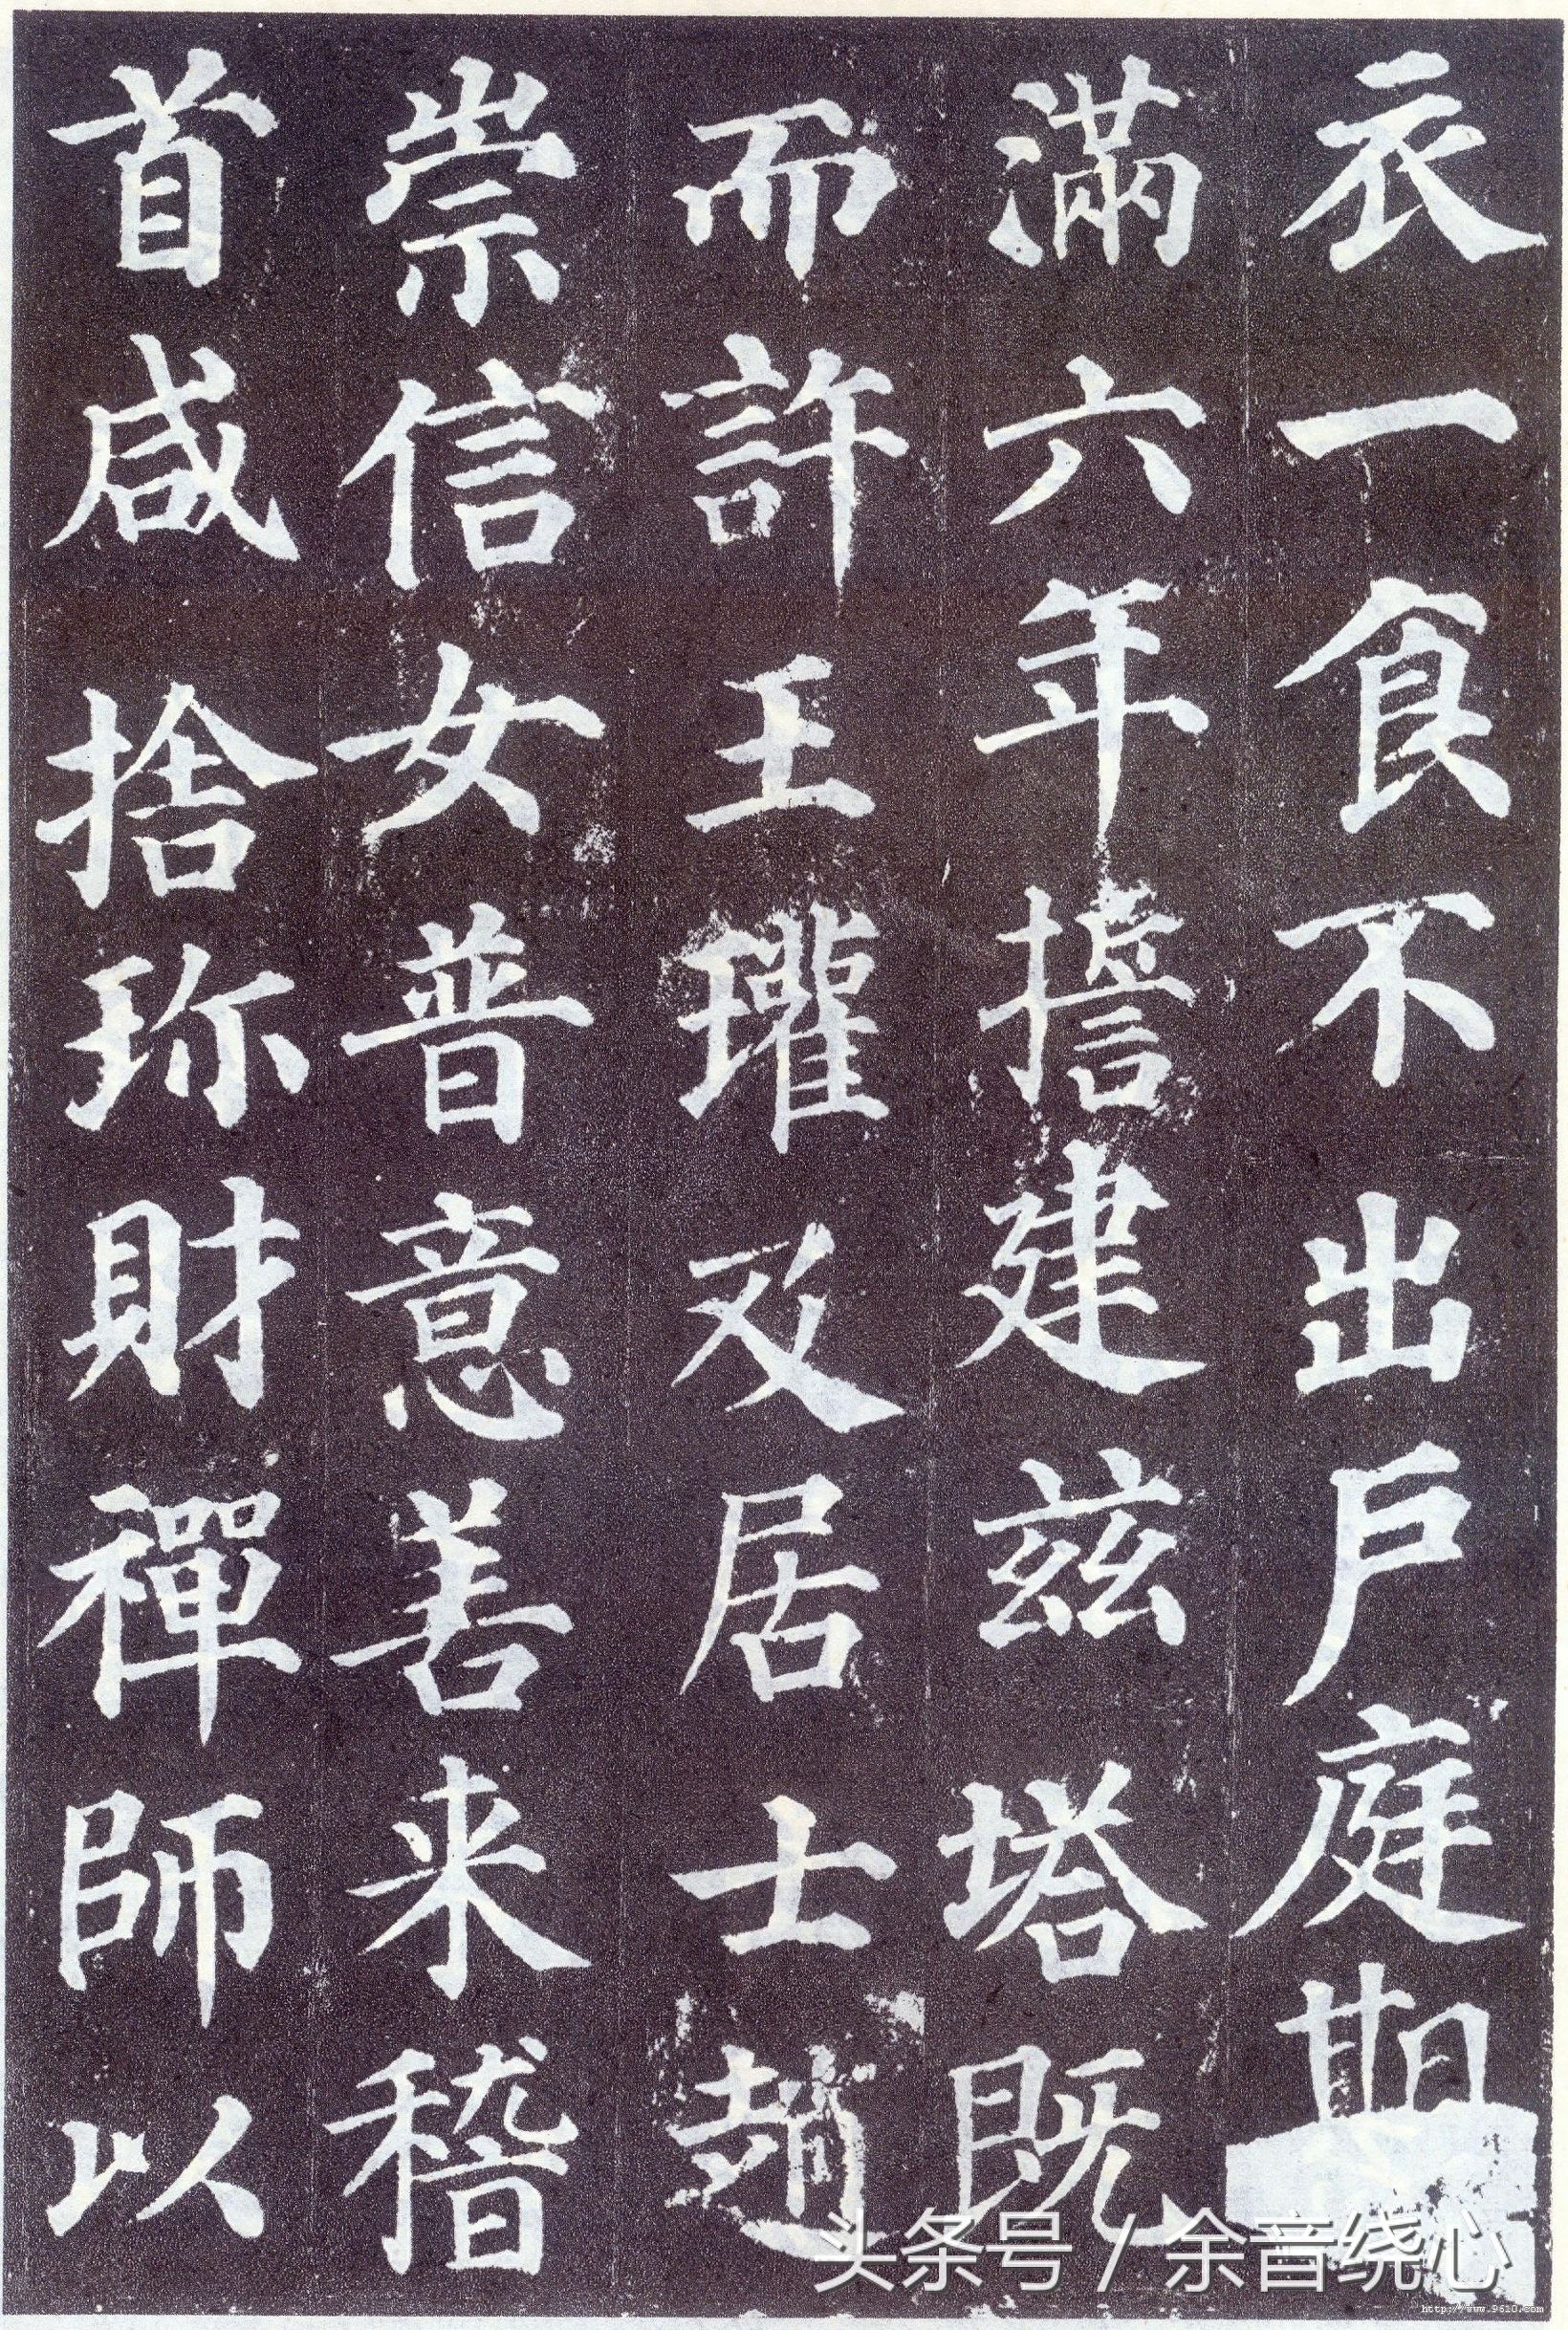 衣一食不出戶庭期
滿六年擔建玆塔既
而許王瓘及居士趙
崇信女普意善来稽
首咸捨珎財禪師以
头条号 / 余音绕心
http://www.9610.com